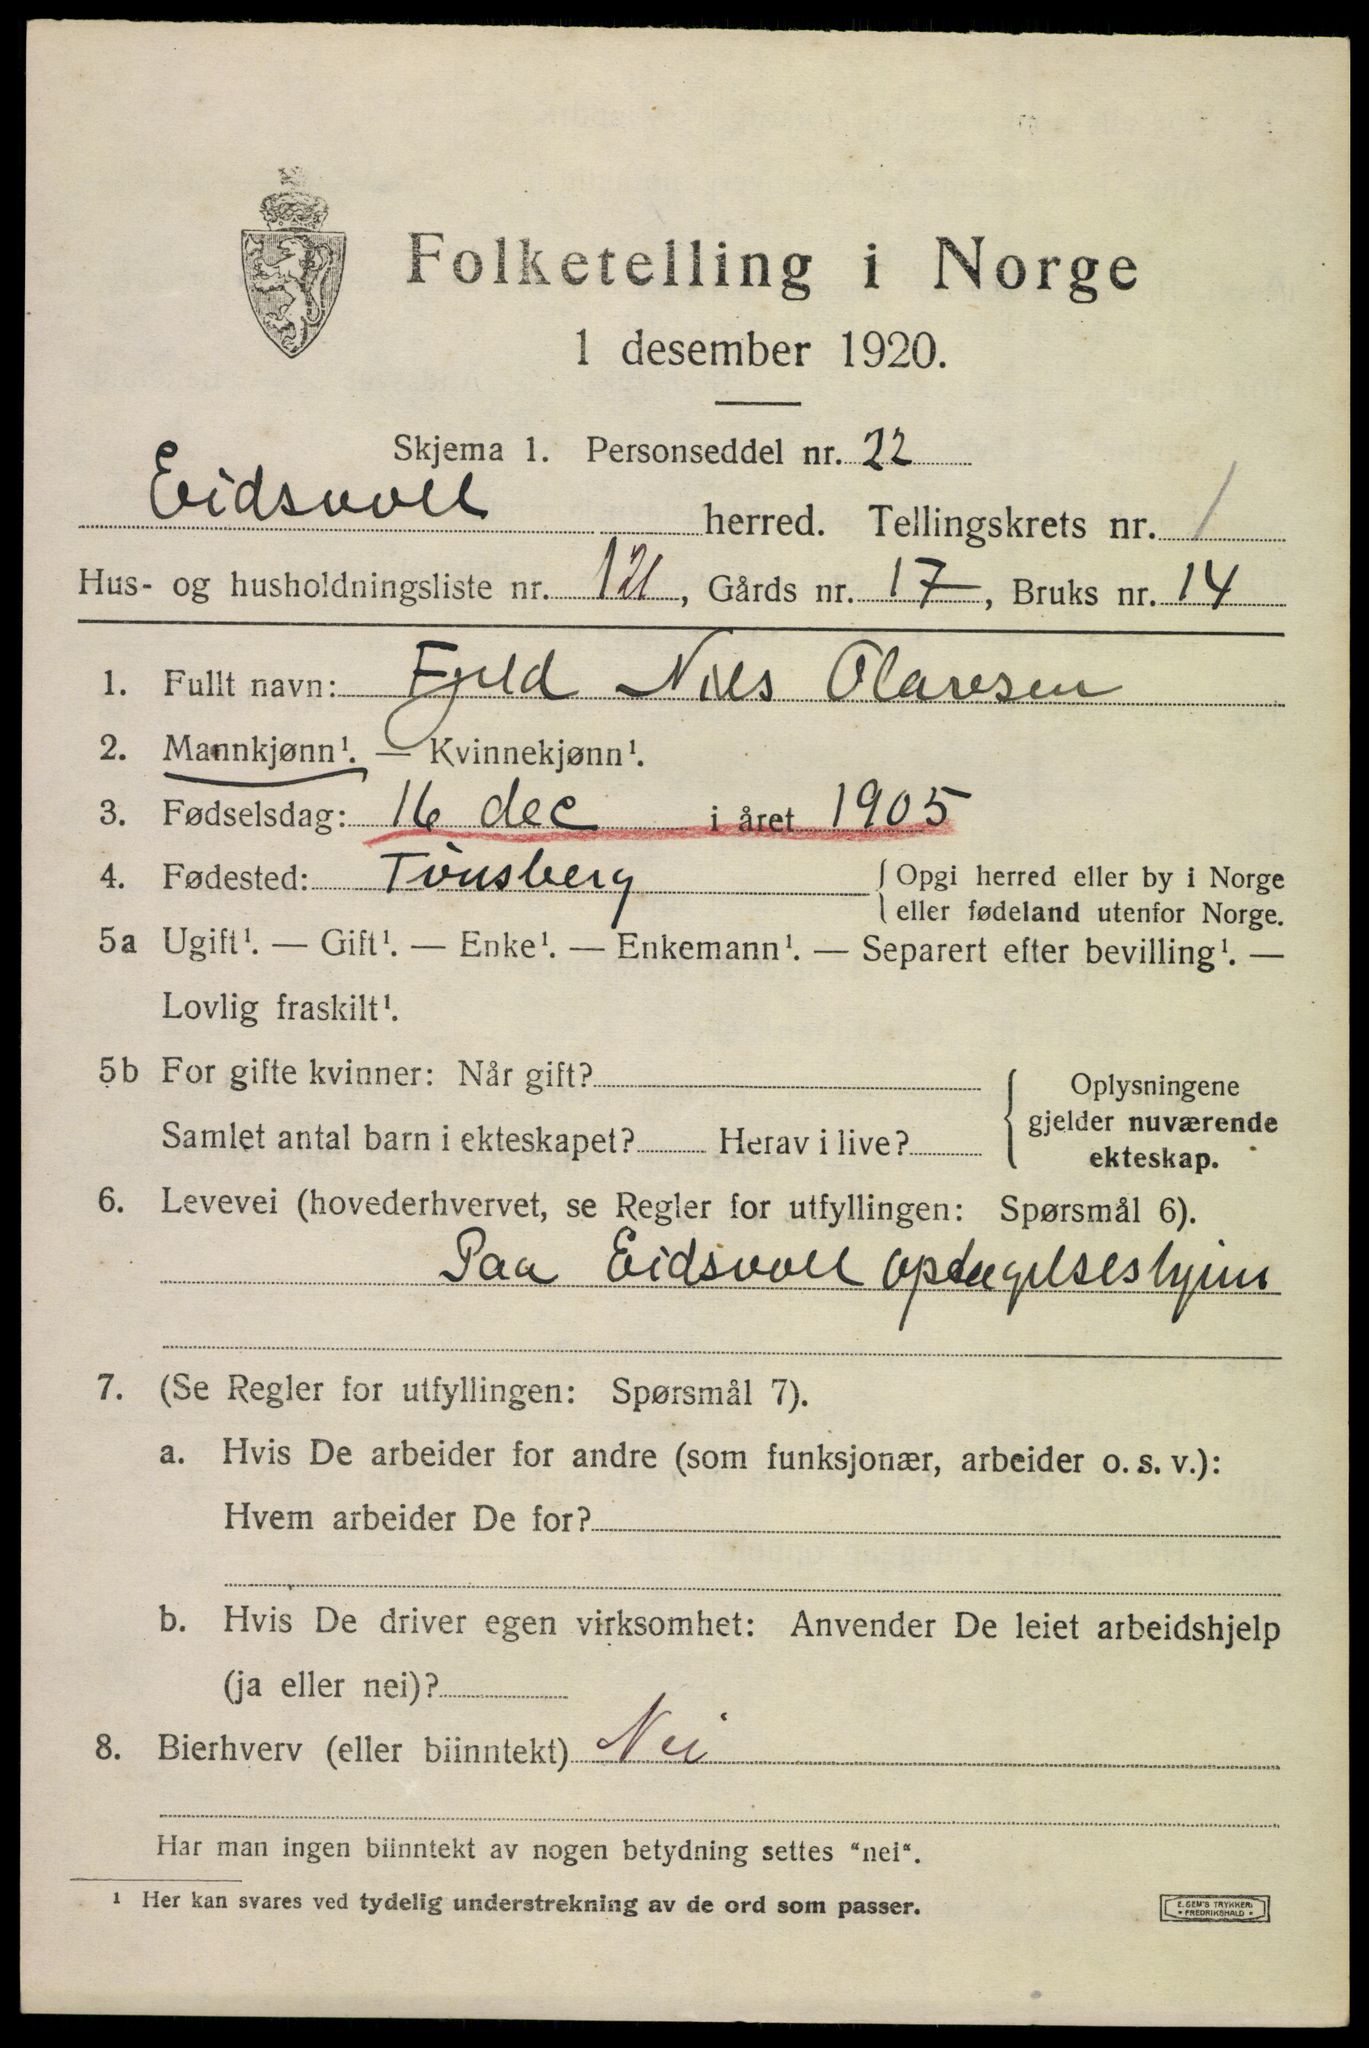 Folketelling i Norge
1 desember 1920.
Skjema 1. Personseddel nr. 22
Eidsvoll herred. Tellingskrets nr. 1
Hus- og husholdningsliste nr. 121, Gårds nr. 17, Bruks nr. 14
1. Fullt navn: Nils Olavesen
2. Mannkjønn¹. — Kvinnekjønn¹.
3. Fødselsdag: 16 dec i året 1905
4. Fødested: Tønsberg { Opgi herred eller by i Norge
eller fødeland utenfor Norge.
5a Ugift¹. — Gift¹. — Enke¹. — Enkemann¹. — Separert efter bevilling¹. —
Lovlig fraskilt¹.
5b For gifte kvinner: Når gift?
Samlet antal barn i ekteskapet? Herav i live?
Oplysningene
gjelder nuværende
ekteskap.
6. Levevei (hovederhvervet, se Regler for utfyllingen: Spørsmål 6).
Paa Eidsvoll optagelseshjem
7. (Se Regler for utfyllingen: Spørsmål 7).
a. Hvis De arbeider for andre (som funksjonær, arbeider o. s. v.):
Hvem arbeider De for?
b. Hvis De driver egen virksomhet: Anvender De leiet arbeidshjelp
(ja eller nei)?
8. Bierhverv (eller biinntekt) Nei
Har man ingen biinntekt av nogen betydning settes "nei".
¹ Her kan svares ved tydelig understrekning av de ord som passer.
E. SEM'S TRYKKERI
* FREDRIKSHALD *